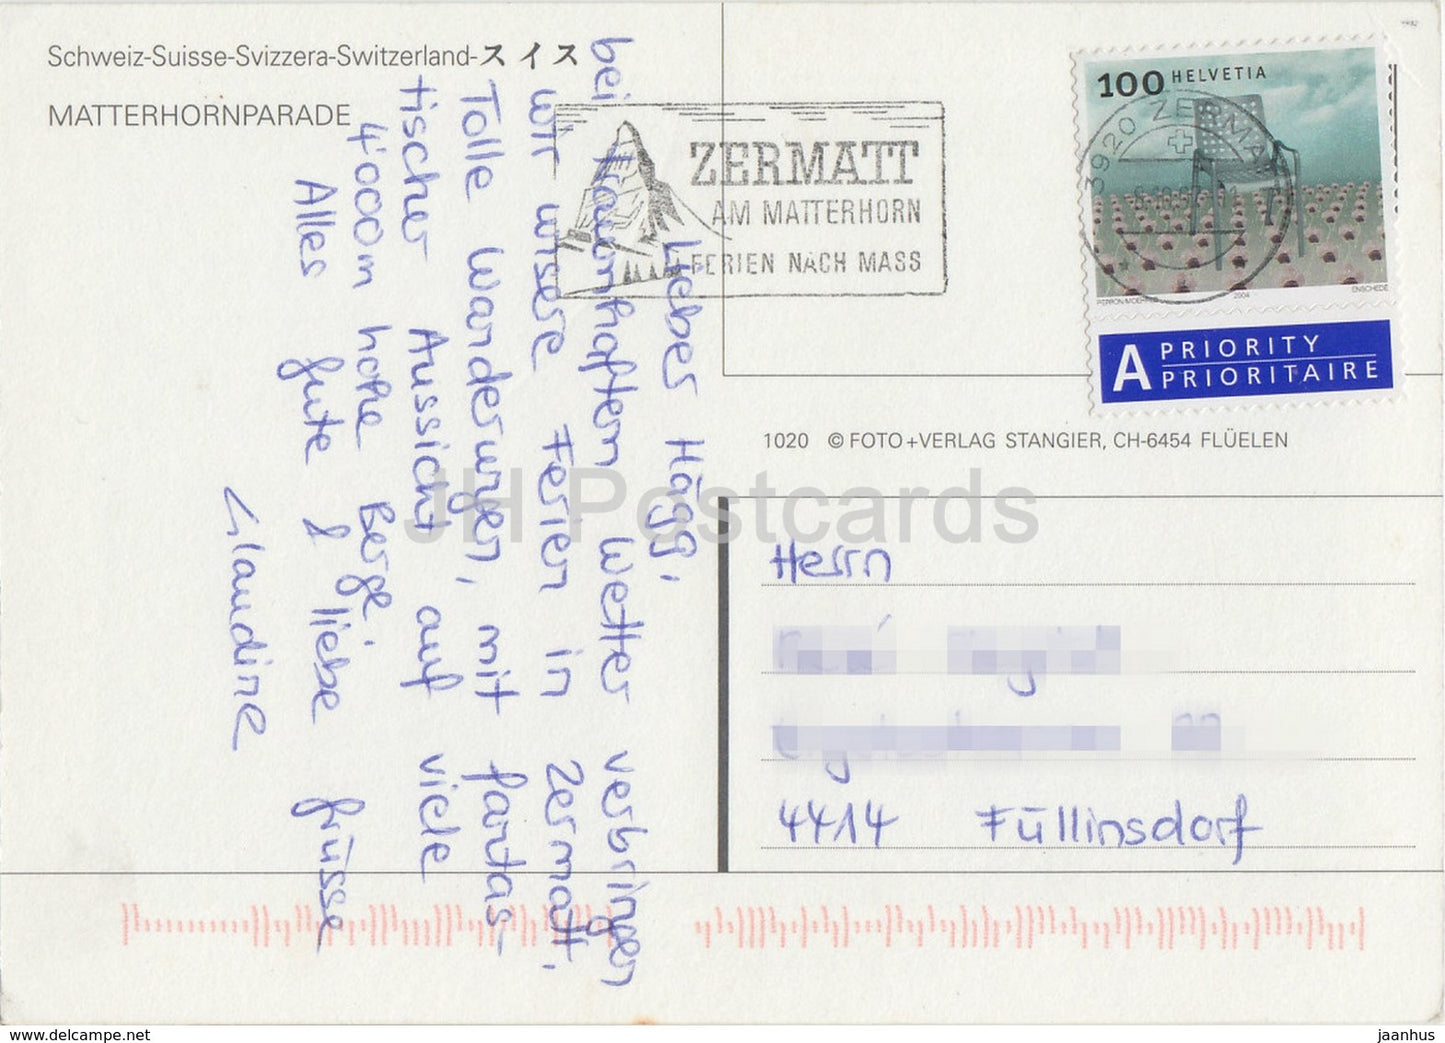 Schweiz-Suisse-Svizzera-Switzerland-スイス
MATTERHORNPARADE
Lieber Häggi,
bei traumhaftem Wetter verbringen
wir unsere Ferien in Zermatt.
Tolle Wanderungen, mit fantas-
tischer Aussicht auf viele
4'000m hohe Berge.
Alles gute & liebe grüsse
Claudine
ZERMATT
AM MATTERHORN
FERIEN NACH MASS
3920 ZERMATT
100 HELVETIA
2004
ENSCHEDE
A PRIORITY
PRIORITAIRE
1020 © FOTO+VERLAG STANGIER, CH-6454 FLÜELEN
Herrn
4414 Füllinsdorf
JH Postcards
www.delcampe.net
jaanhus